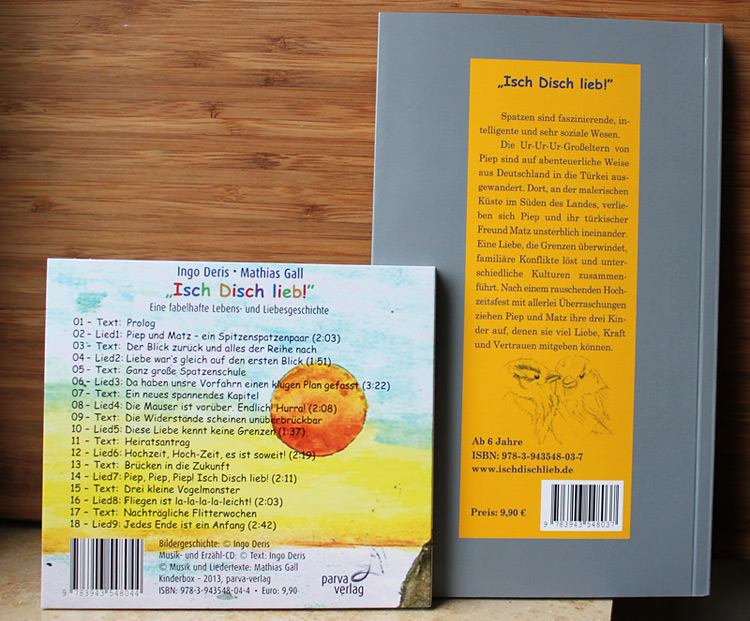 Ingo Deris • Mathias Gall
„Isch Disch lieb!“
Eine fabelhafte Lebens- und Liebesgeschichte
01 – Text: Prolog
02 – Lied1: Piep und Matz – ein Spitzenspatzenpaar (2:03)
03 – Text: Der Blick zurück und alles der Reihe nach
04 – Lied2: Liebe war's gleich auf den ersten Blick (1:51)
05 – Text: Ganz große Spatzenschule
06 – Lied3: Da haben unsre Vorfahrn einen klugen Plan gefasst (3:22)
07 – Text: Ein neues spannendes Kapitel
08 – Lied4: Die Mauser ist vorüber. Endlich! Hurra! (2:08)
09 – Text: Die Widerstände scheinen unüberbrückbar
10 – Lied5: Diese Liebe kennt keine Grenzen (1:37)
11 – Text: Heiratsantrag
12 – Lied6: Hochzeit, Hoch-Zeit, es ist soweit! (2:19)
13 – Text: Brücken in die Zukunft
14 – Lied7: Piep, Piep, Piep! Isch Disch lieb! (2:11)
15 – Text: Drei kleine Vogelmonster
16 – Lied8: Fliegen ist la-la-la-la-leicht! (2:03)
17 – Text: Nachträgliche Flitterwochen
18 – Lied9: Jedes Ende ist ein Anfang (2:42)
Bildergeschichte: © Ingo Deris
Musik- und Erzähl-CD: © Text: Ingo Deris
© Musik und Liedertexte: Mathias Gall
Kinderbox - 2013, parva-verlag
ISBN: 978-3-943548-04-4 • Euro: 9,90
9 783943 548044
parva
verlag
„Isch Disch lieb!“
Spatzen sind faszinierende, in-
telligente und sehr soziale Wesen.
Die Ur-Ur-Ur-Großeltern von
Piep sind auf abenteuerliche Weise
aus Deutschland in die Türkei aus-
gewandert. Dort, an der malerischen
Küste im Süden des Landes, verlie-
ben sich Piep und ihr türkischer
Freund Matz unsterblich ineinander.
Eine Liebe, die Grenzen überwindet,
familiäre Konflikte löst und unter-
schiedliche Kulturen zusammen-
führt. Nach einem rauschenden Hoch-
zeitsfest mit allerlei Überraschungen
ziehen Piep und Matz ihre drei Kin-
der auf, denen sie viel Liebe, Kraft
und Vertrauen mitgeben können.
Ab 6 Jahre
ISBN: 978-3-943548-03-7
www.ischdischlieb.de
Preis: 9,90 €
9 783943 548037